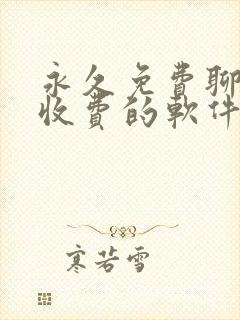 永久免費聊
收費的軟件
寒若雪